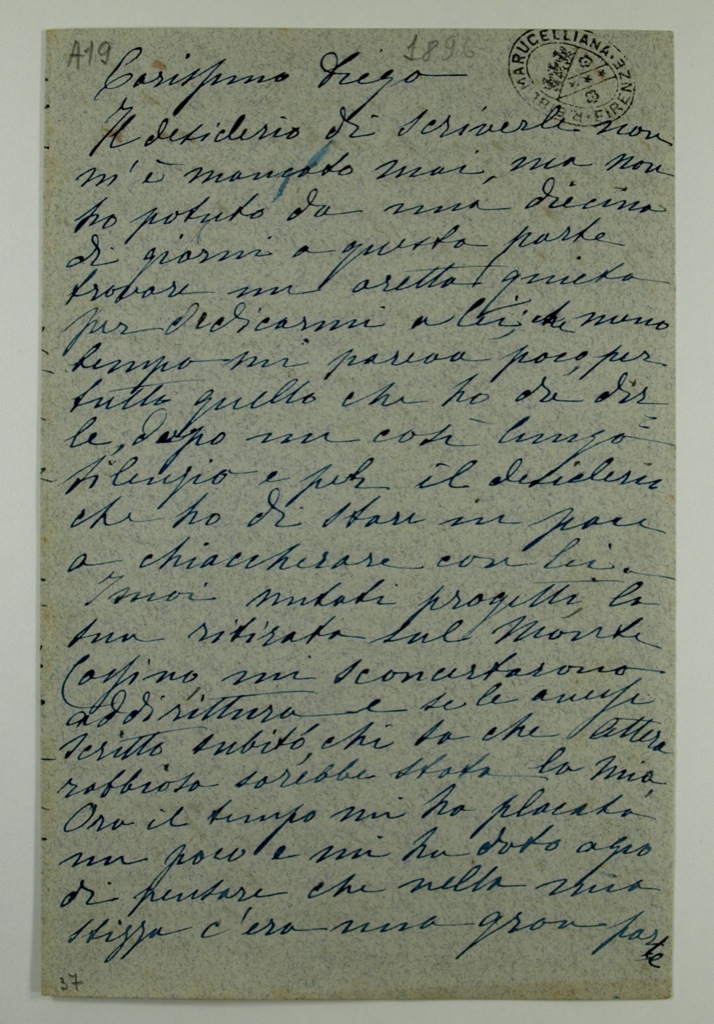 A19 1896
MARUCELLIANA · FIRENZE
Carissimo Diego
Il desiderio di scriverle non
m'è mancato mai, ma non
ho potuto da una diecina
di giorni a questa parte
trovare un oretta quieta
per dedicarmi a lei, che meno
tempo mi pareva poco, per
tutto quello che ho da dir=
le, dopo un così lungo
silenzio e per il desiderio
che ho di stare in pace
a chiaccherare con lei.
I suoi mutati progetti, la
sua ritirata sul Monte
Cassino, mi sconcertarono
addirittura e se le avessi
scritto subito, chi sa che lettera
rabbiosa sarebbe stata la mia,
Ora il tempo mi ha placata
un poco e mi ha dato agio
di pensare che nella mia
stizza c'era una gran parte
37